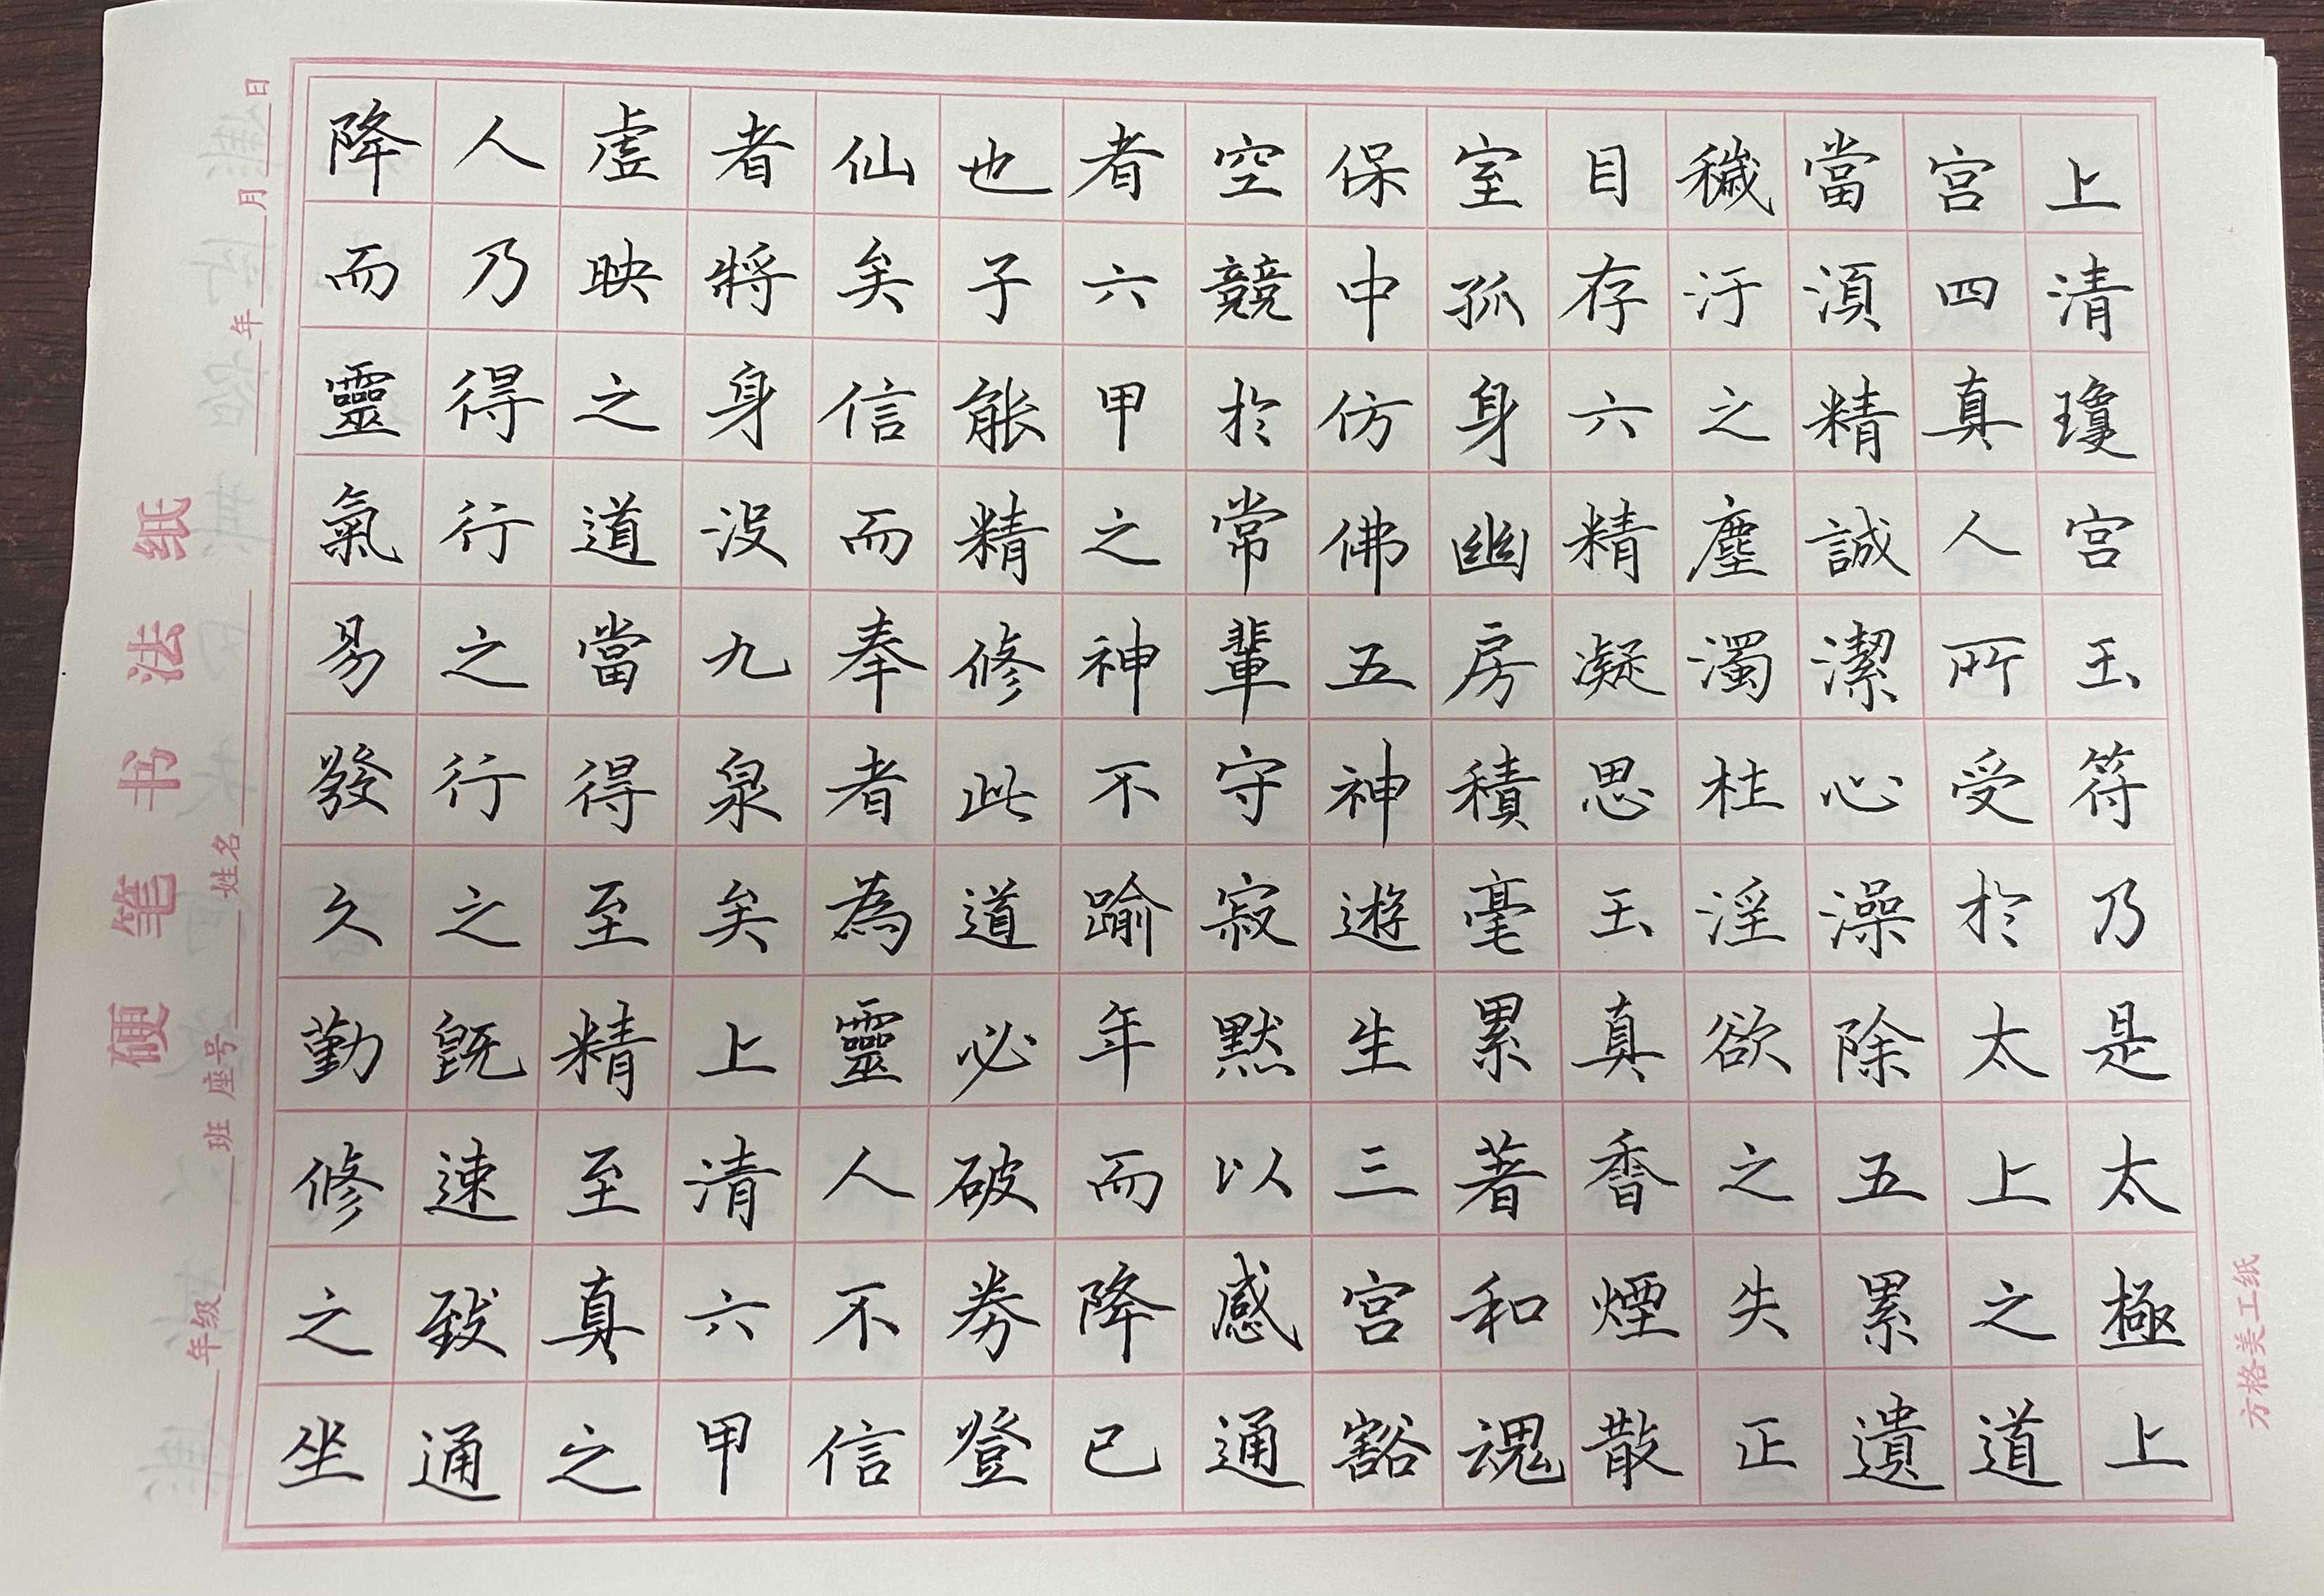 上清瓊宫玉符乃是太極上
宫四真人所受於太上之道
當湏精誠潔心澡除五累遺
穢汙之塵濁杜淫欲之失正
目存六精凝思玉真香煙散
室孤身幽房積毫累著和魂
保中仿佛五神遊生三宫豁
空競於常輩守寂默以感通
者六甲之神不踰年而降已
也子能精修此道必破券登
仙矣信而奉者為靈人不信
者將身没九泉矣上清六甲
虛映之道當得至精至真之
人乃得行之行之既速致通
降而靈氣易發久勤修之坐
硬笔书法纸
年级 班 座号 姓名 年 月 日
方格美工纸